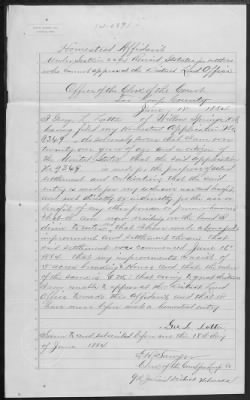 Homestead Affidavit
Under Section 2294 Revised Statutes for settlers
who cannot appear at the District Land Office
Office of the Clerk of the Court
for Loup County
June 18 1884
I Geo. L. of Willow Springs
having filed my Homestead Application No.
9249 do solemnly swear that I am over
twenty one years of age and a citizen of
the United States that the said application
No 9249 is made for the purpose of actual
settlement and cultivation that the said
entry is made for my exclusive use and benefit
and not directly or indirectly for the use or
benefit of any other person or persons whomsoever
that I am now residing on the land I
desire to enter that I have made a bona fide
improvement and settlement thereon that
said settlement was commenced June 16th
1884 that my improvements consist of
acres breaking & House and that the value
of the same is $ that owing to great distance
I am unable to appear at the District Land
Office to make this Affidavit and that I
have never before made a homestead entry
Geo. L.
Sworn to and subscribed before me this 18th day
of June 1884
Clerk of the
Nebraska